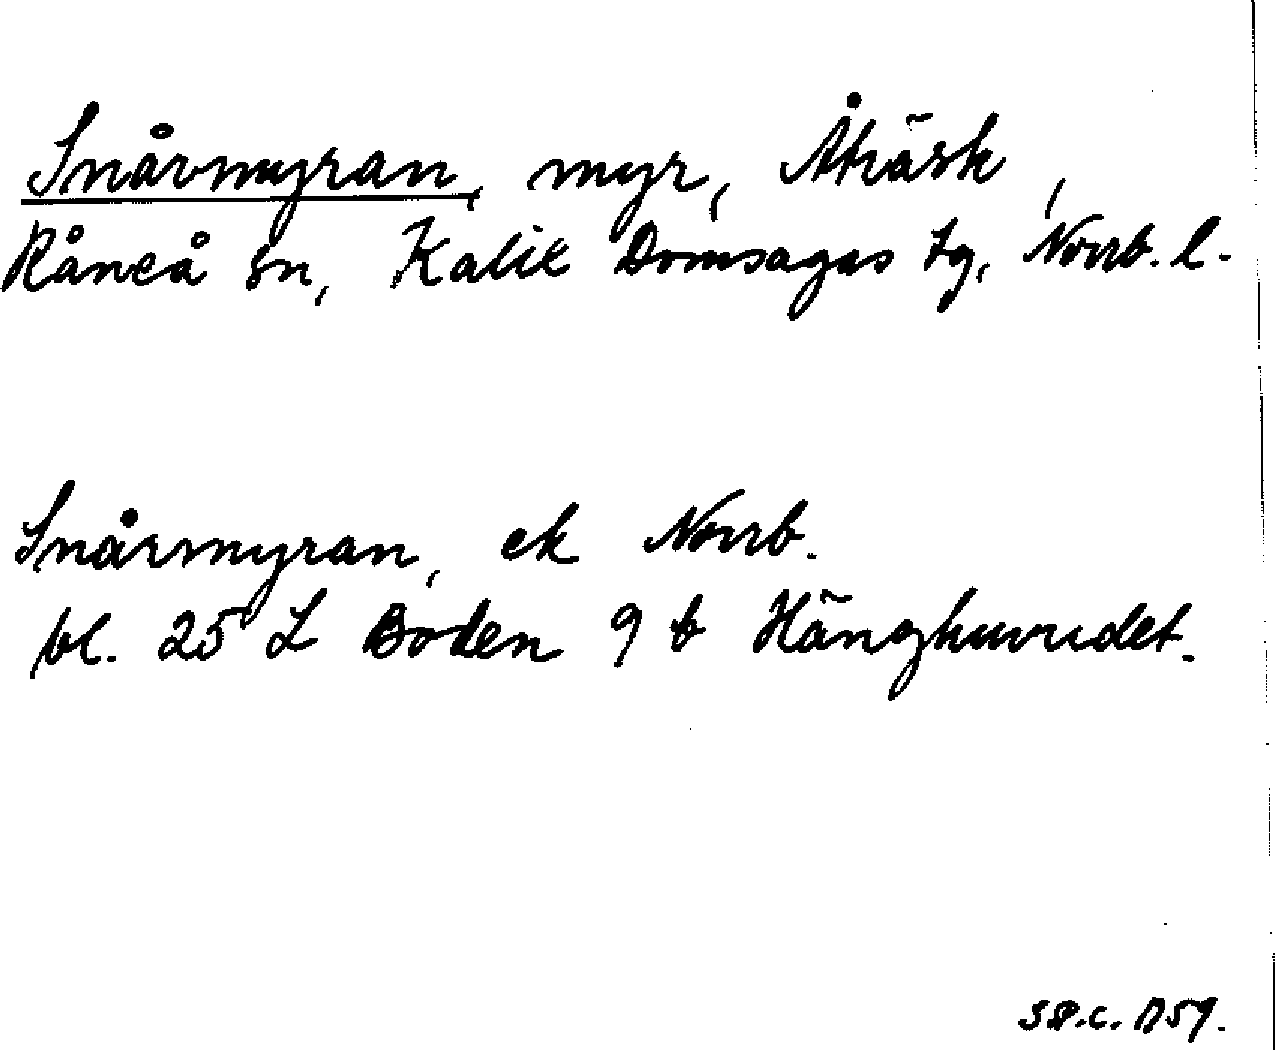 Snårmyran, myr, Åträsk,
Råneå sn, Kalix Domsagas tg, Norrb. l.
Snårmyran, ek Norrb.
bl. 25 L Boden 9 b Hänghuvudet.